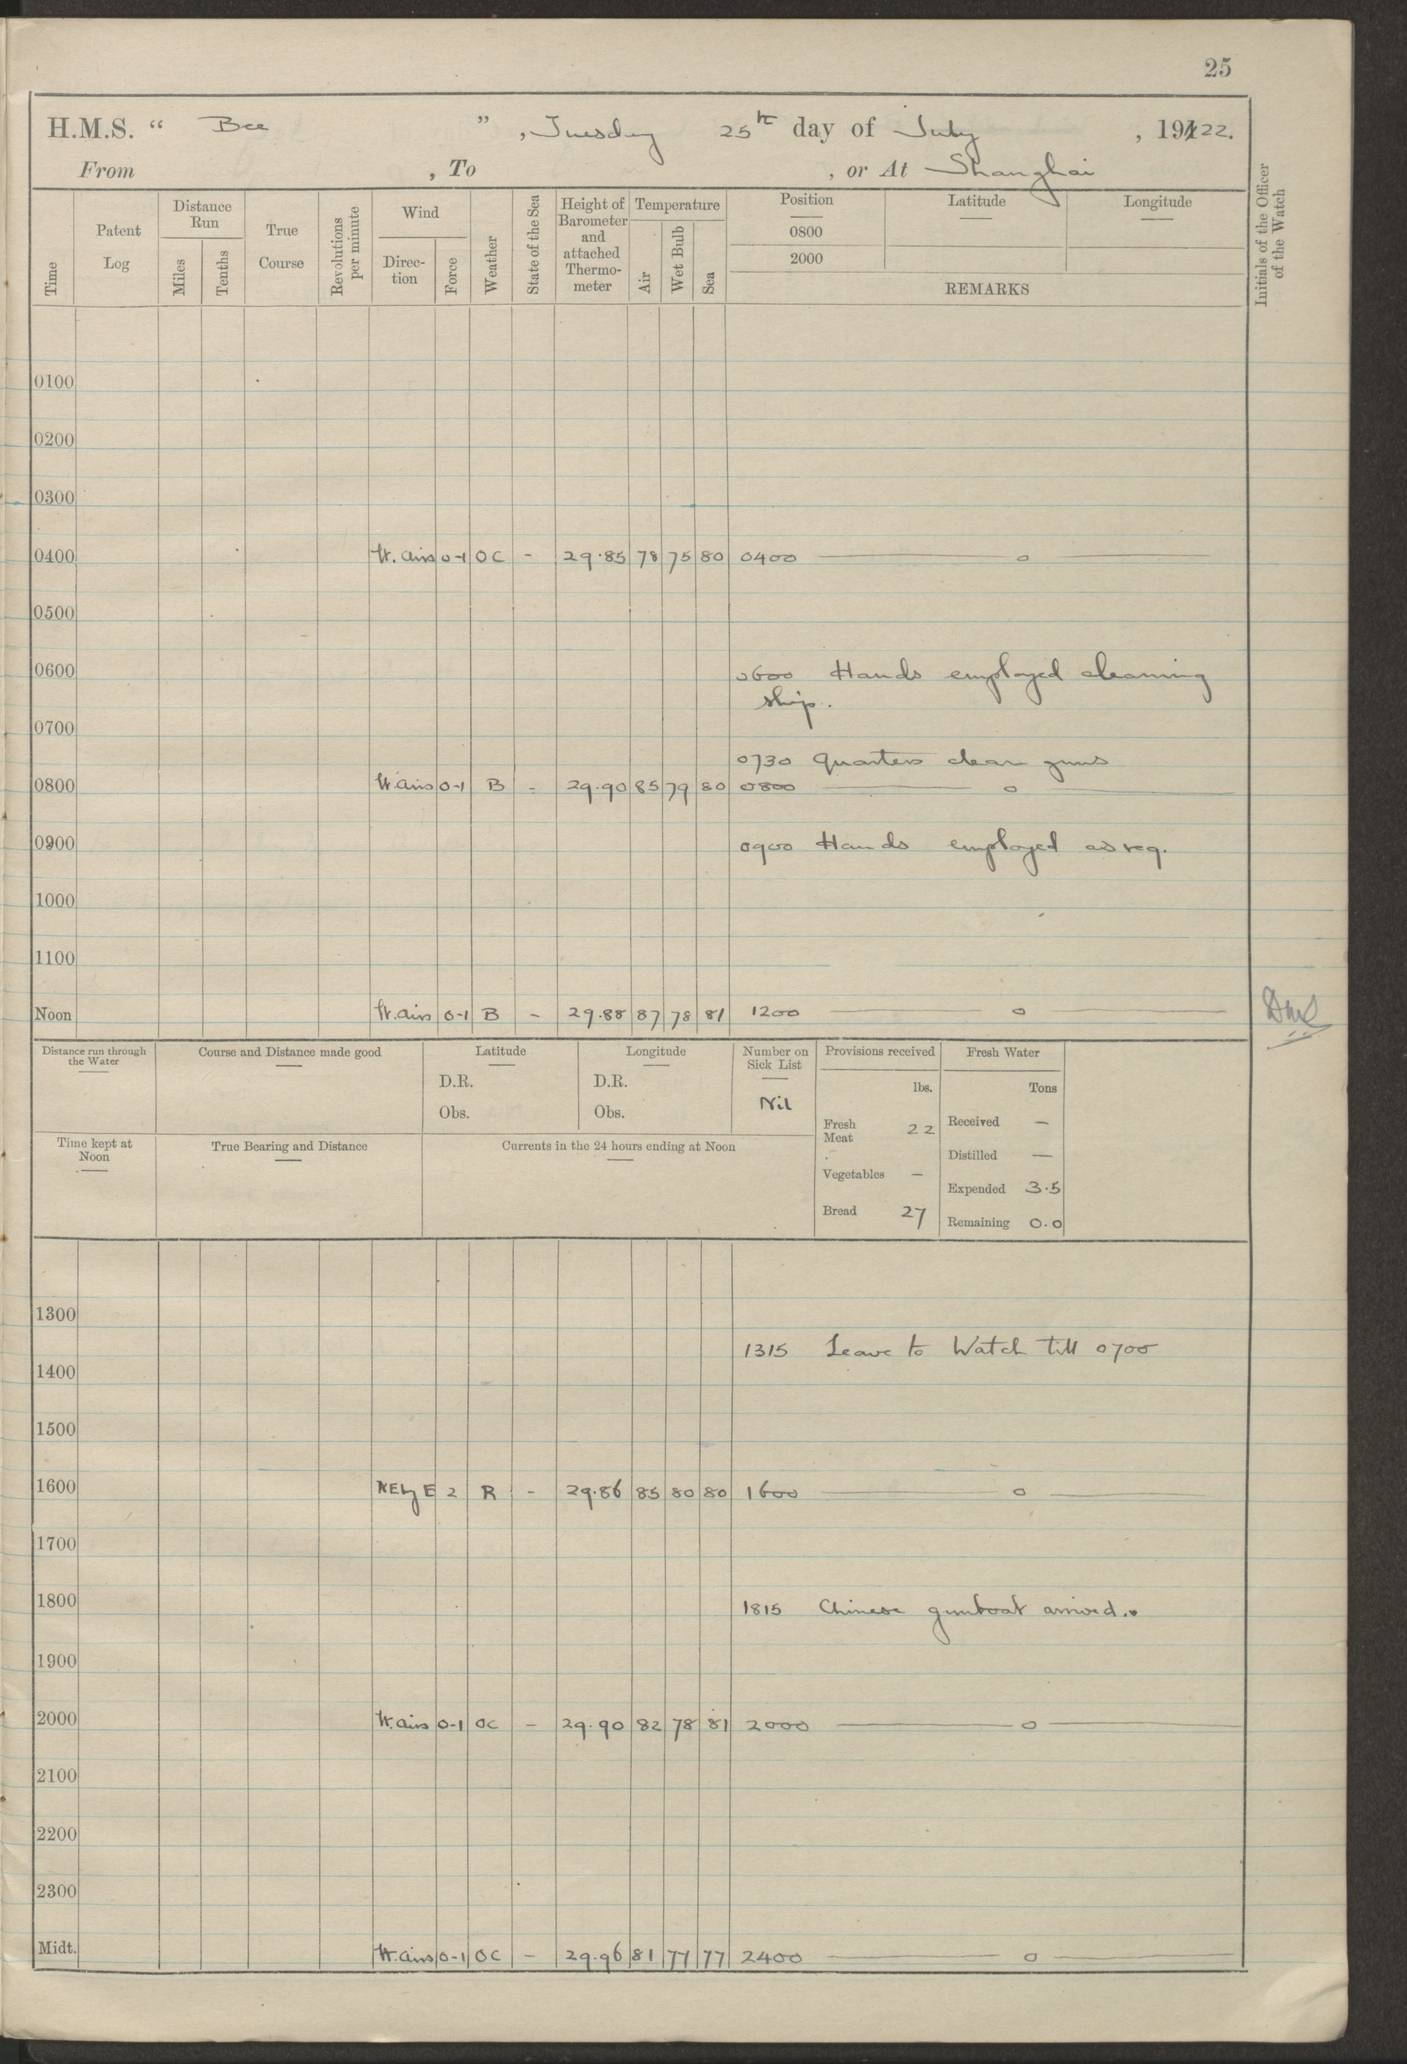 25
H.M.S. “ Bee ” , Tuesday 25th day of July , 1922.
From , To , or At Shanghai
Time
Patent Log
Distance Run
Miles
Tenths
True Course
Revolutions per minute
Wind
Direc-tion
Force
Weather
State of the Sea
Height of Barometer and attached Thermo-meter
Temperature
Air
Wet Bulb
Sea
Position
0800
2000
Latitude
Longitude
REMARKS
Initials of the Officer of the Watch
0100
0200
0300
0400 lt. airs 0-1 OC - 29.85 78 75 80 0400 — o —
0500
0600 0600 Hands employed cleaning
ship.
0700
0730 Quarters clean guns
0800 lt airs 0-1 B - 29.90 85 79 80 0800 — o —
0900 0900 Hands employed as req.
1000
1100
Noon lt. airs 0-1 B - 29.88 87 78 81 1200 — o —
Distance run through the Water
Course and Distance made good
Latitude
D.R.
Obs.
Longitude
D.R.
Obs.
Number on Sick List
Nil
Provisions received
lbs.
Fresh Meat 22
Vegetables —
Bread 27
Fresh Water
Tons
Received —
Distilled —
Expended 3.5
Remaining 0.0
Time kept at Noon
True Bearing and Distance
Currents in the 24 hours ending at Noon
1300
1315 Leave to Watch till 0700
1400
1500
1600 NEbyE 2 R - 29.86 85 80 80 1600 — o —
1700
1800
1815 Chinese gunboat arrived.
1900
2000 lt. airs 0-1 OC - 29.90 82 78 81 2000 — o —
2100
2200
2300
Midt. lt. airs 0-1 OC - 29.96 81 77 77 2400 — o —